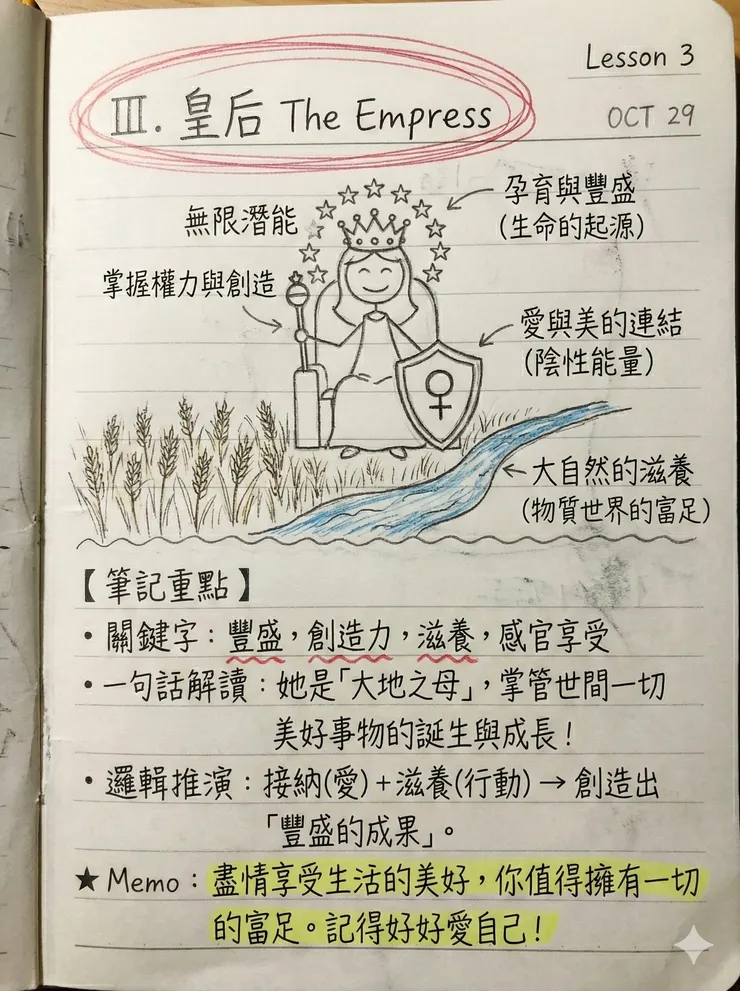 Lesson 3
III. 皇后 The Empress
OCT 29
孕育與豐盛
(生命的起源)
無限潛能
掌握權力與創造
愛與美的連結
(陰性能量)
大自然的滋養
(物質世界的富足)
【筆記重點】
• 關鍵字：豐盛，創造力，滋養，感官享受
• 一句話解讀：她是「大地之母」，掌管世間一切
美好事物的誕生與成長！
• 邏輯推演：接納(愛)+滋養(行動)→創造出
「豐盛的成果」。
★ Memo：盡情享受生活的美好，你值得擁有一切
的富足。記得好好愛自己！